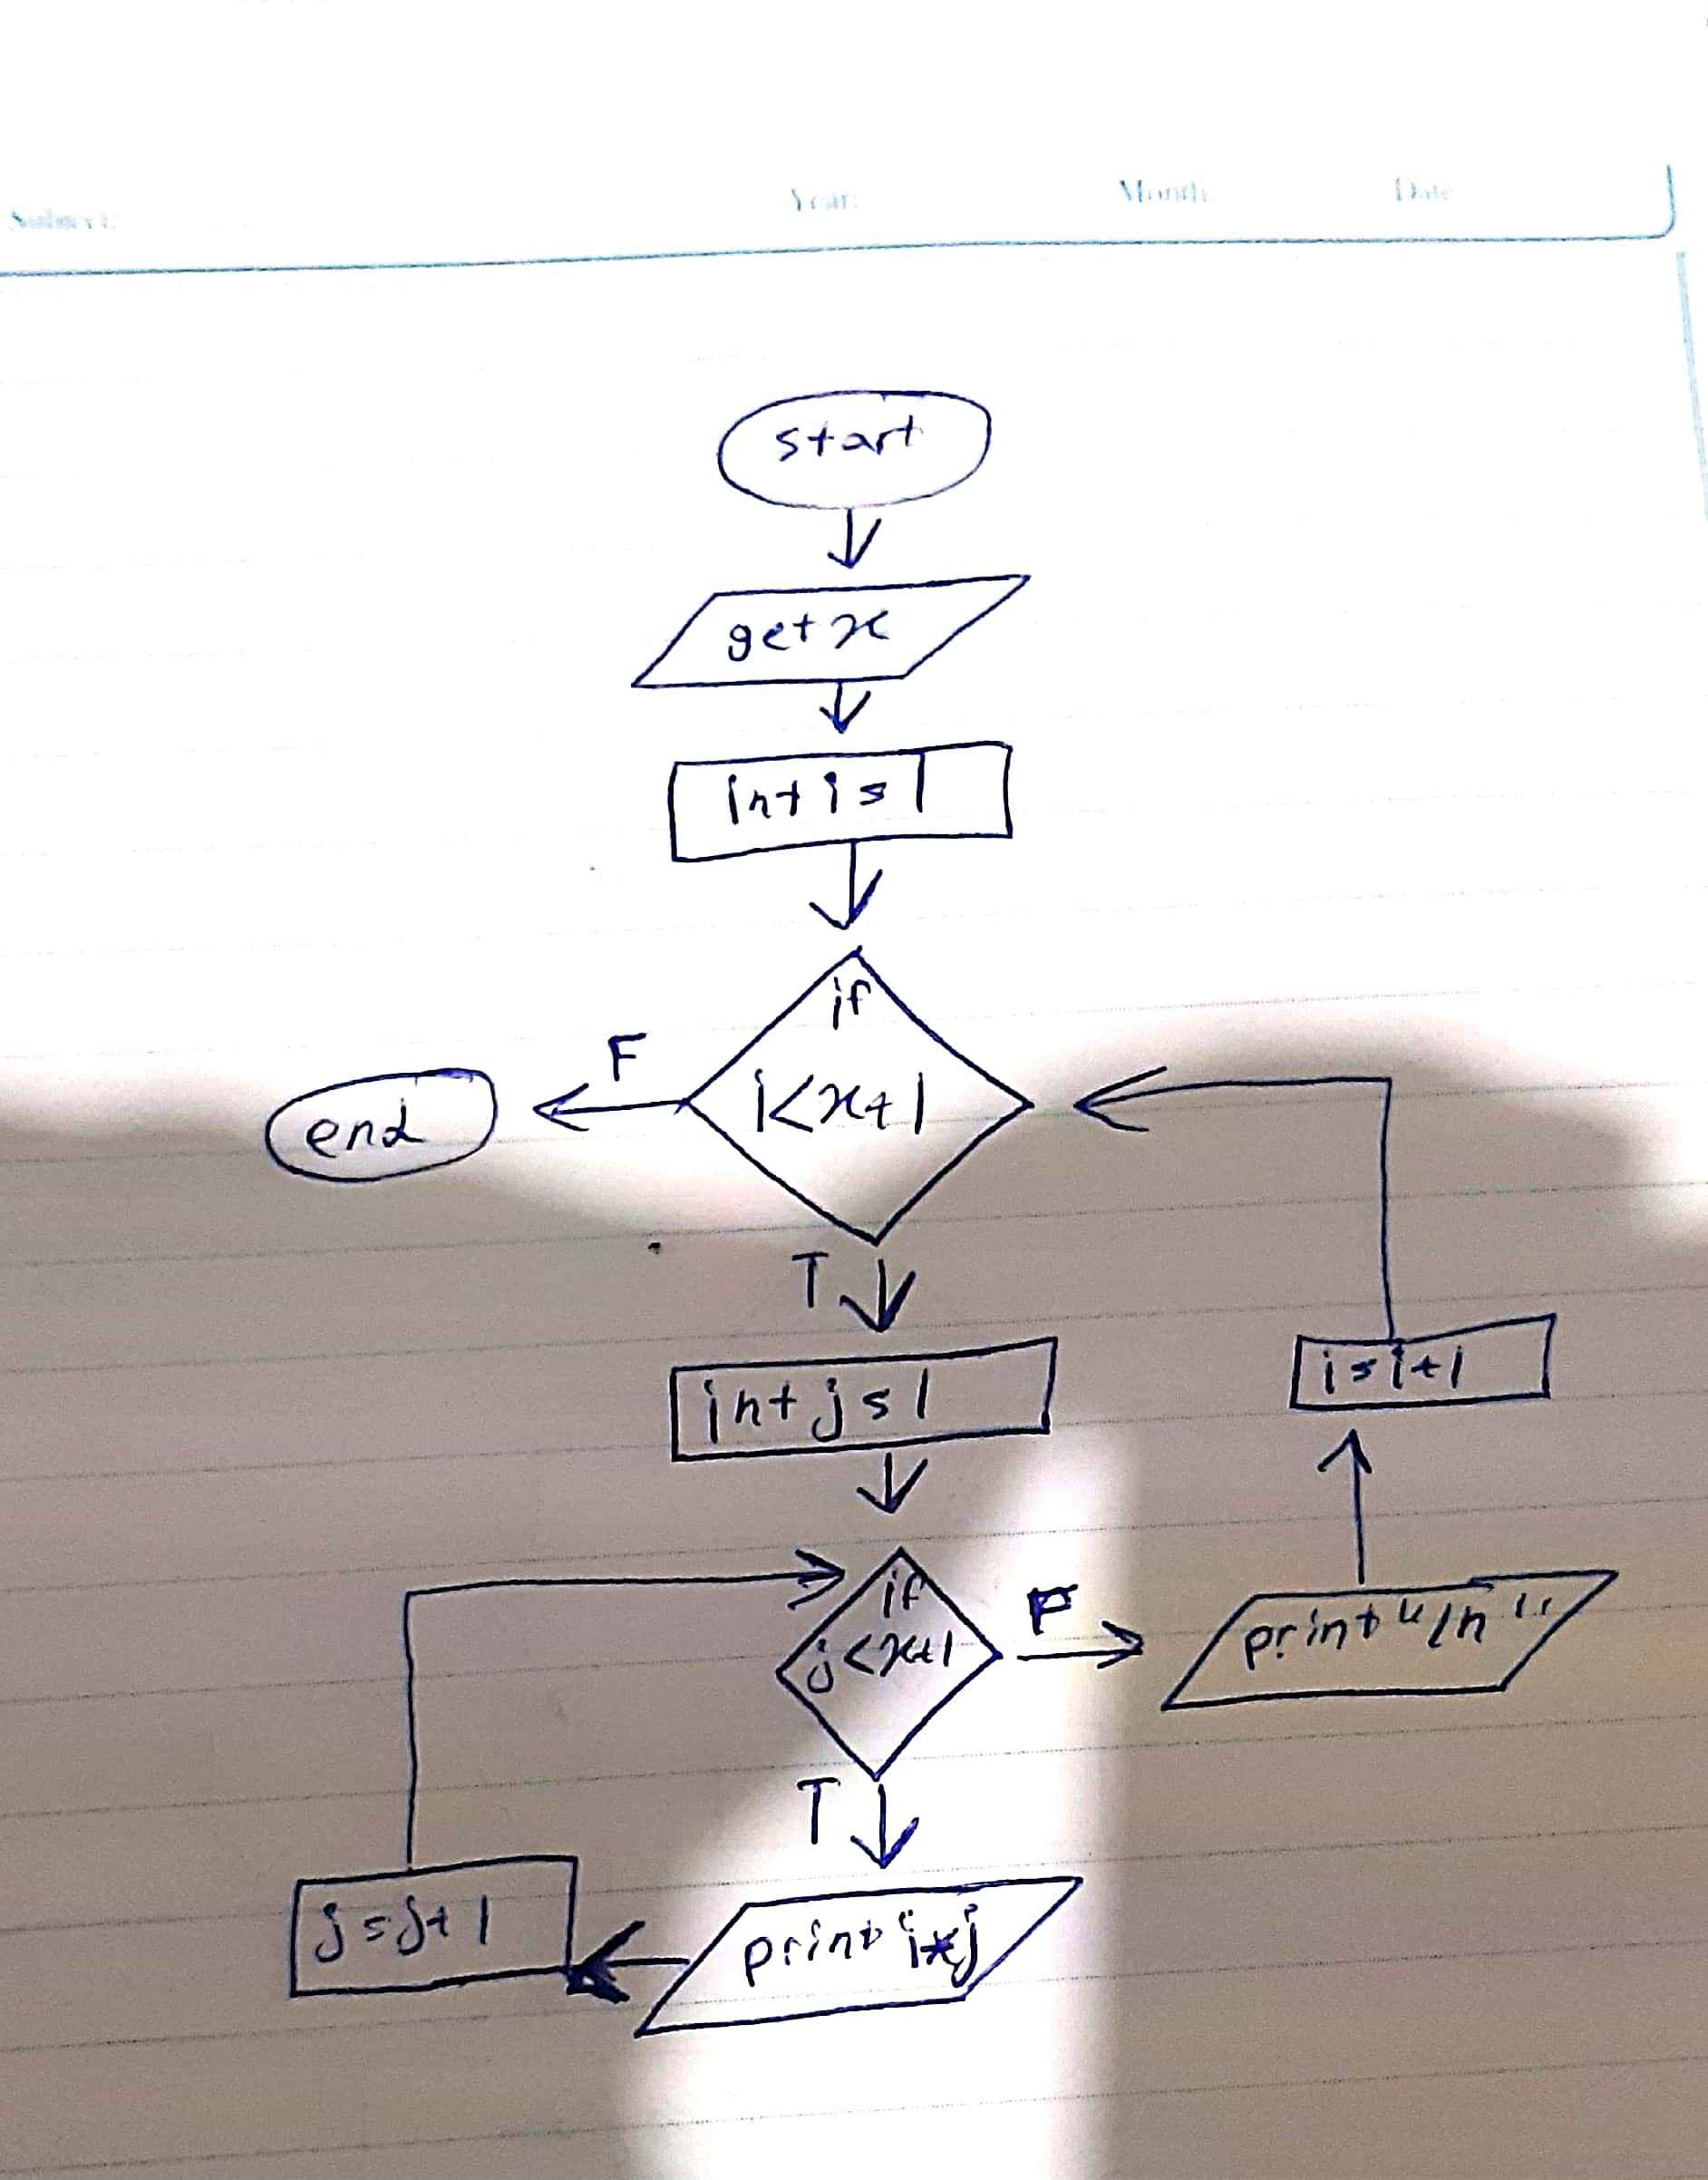 Subject:
Year:
Month:
Date
start
get x
int i = 1
if
i<x+1
F
end
T
int j = 1
i = i+1
if
j<x+1
F
print "/n"
T
j = j+1
print i*j